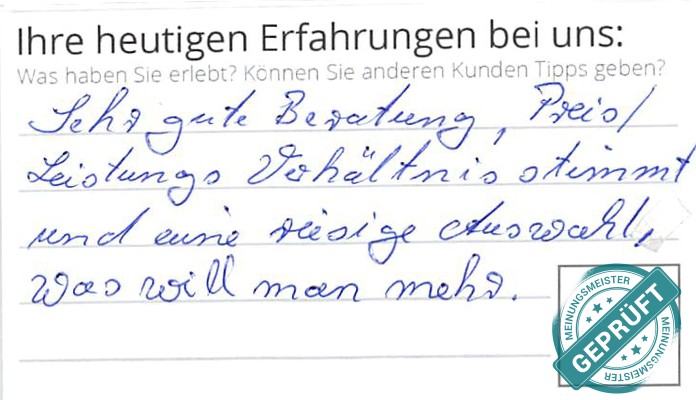 Ihre heutigen Erfahrungen bei uns:
Was haben Sie erlebt? Können Sie anderen Kunden Tipps geben?
Sehr gute Beratung, Preis/
Leistungs Verhältnis stimmt
und eine riesige Auswahl,
was will man mehr.
MEINUNGSMEISTER
GEPRÜFT
MEINUNGSMEISTER